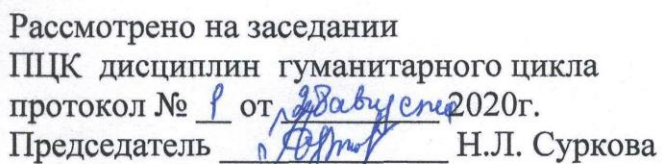 Рассмотрено на заседании
ПЦК дисциплин гуманитарного цикла
протокол № 1 от „28 августа 2020г.
Председатель Н.Л. Суркова